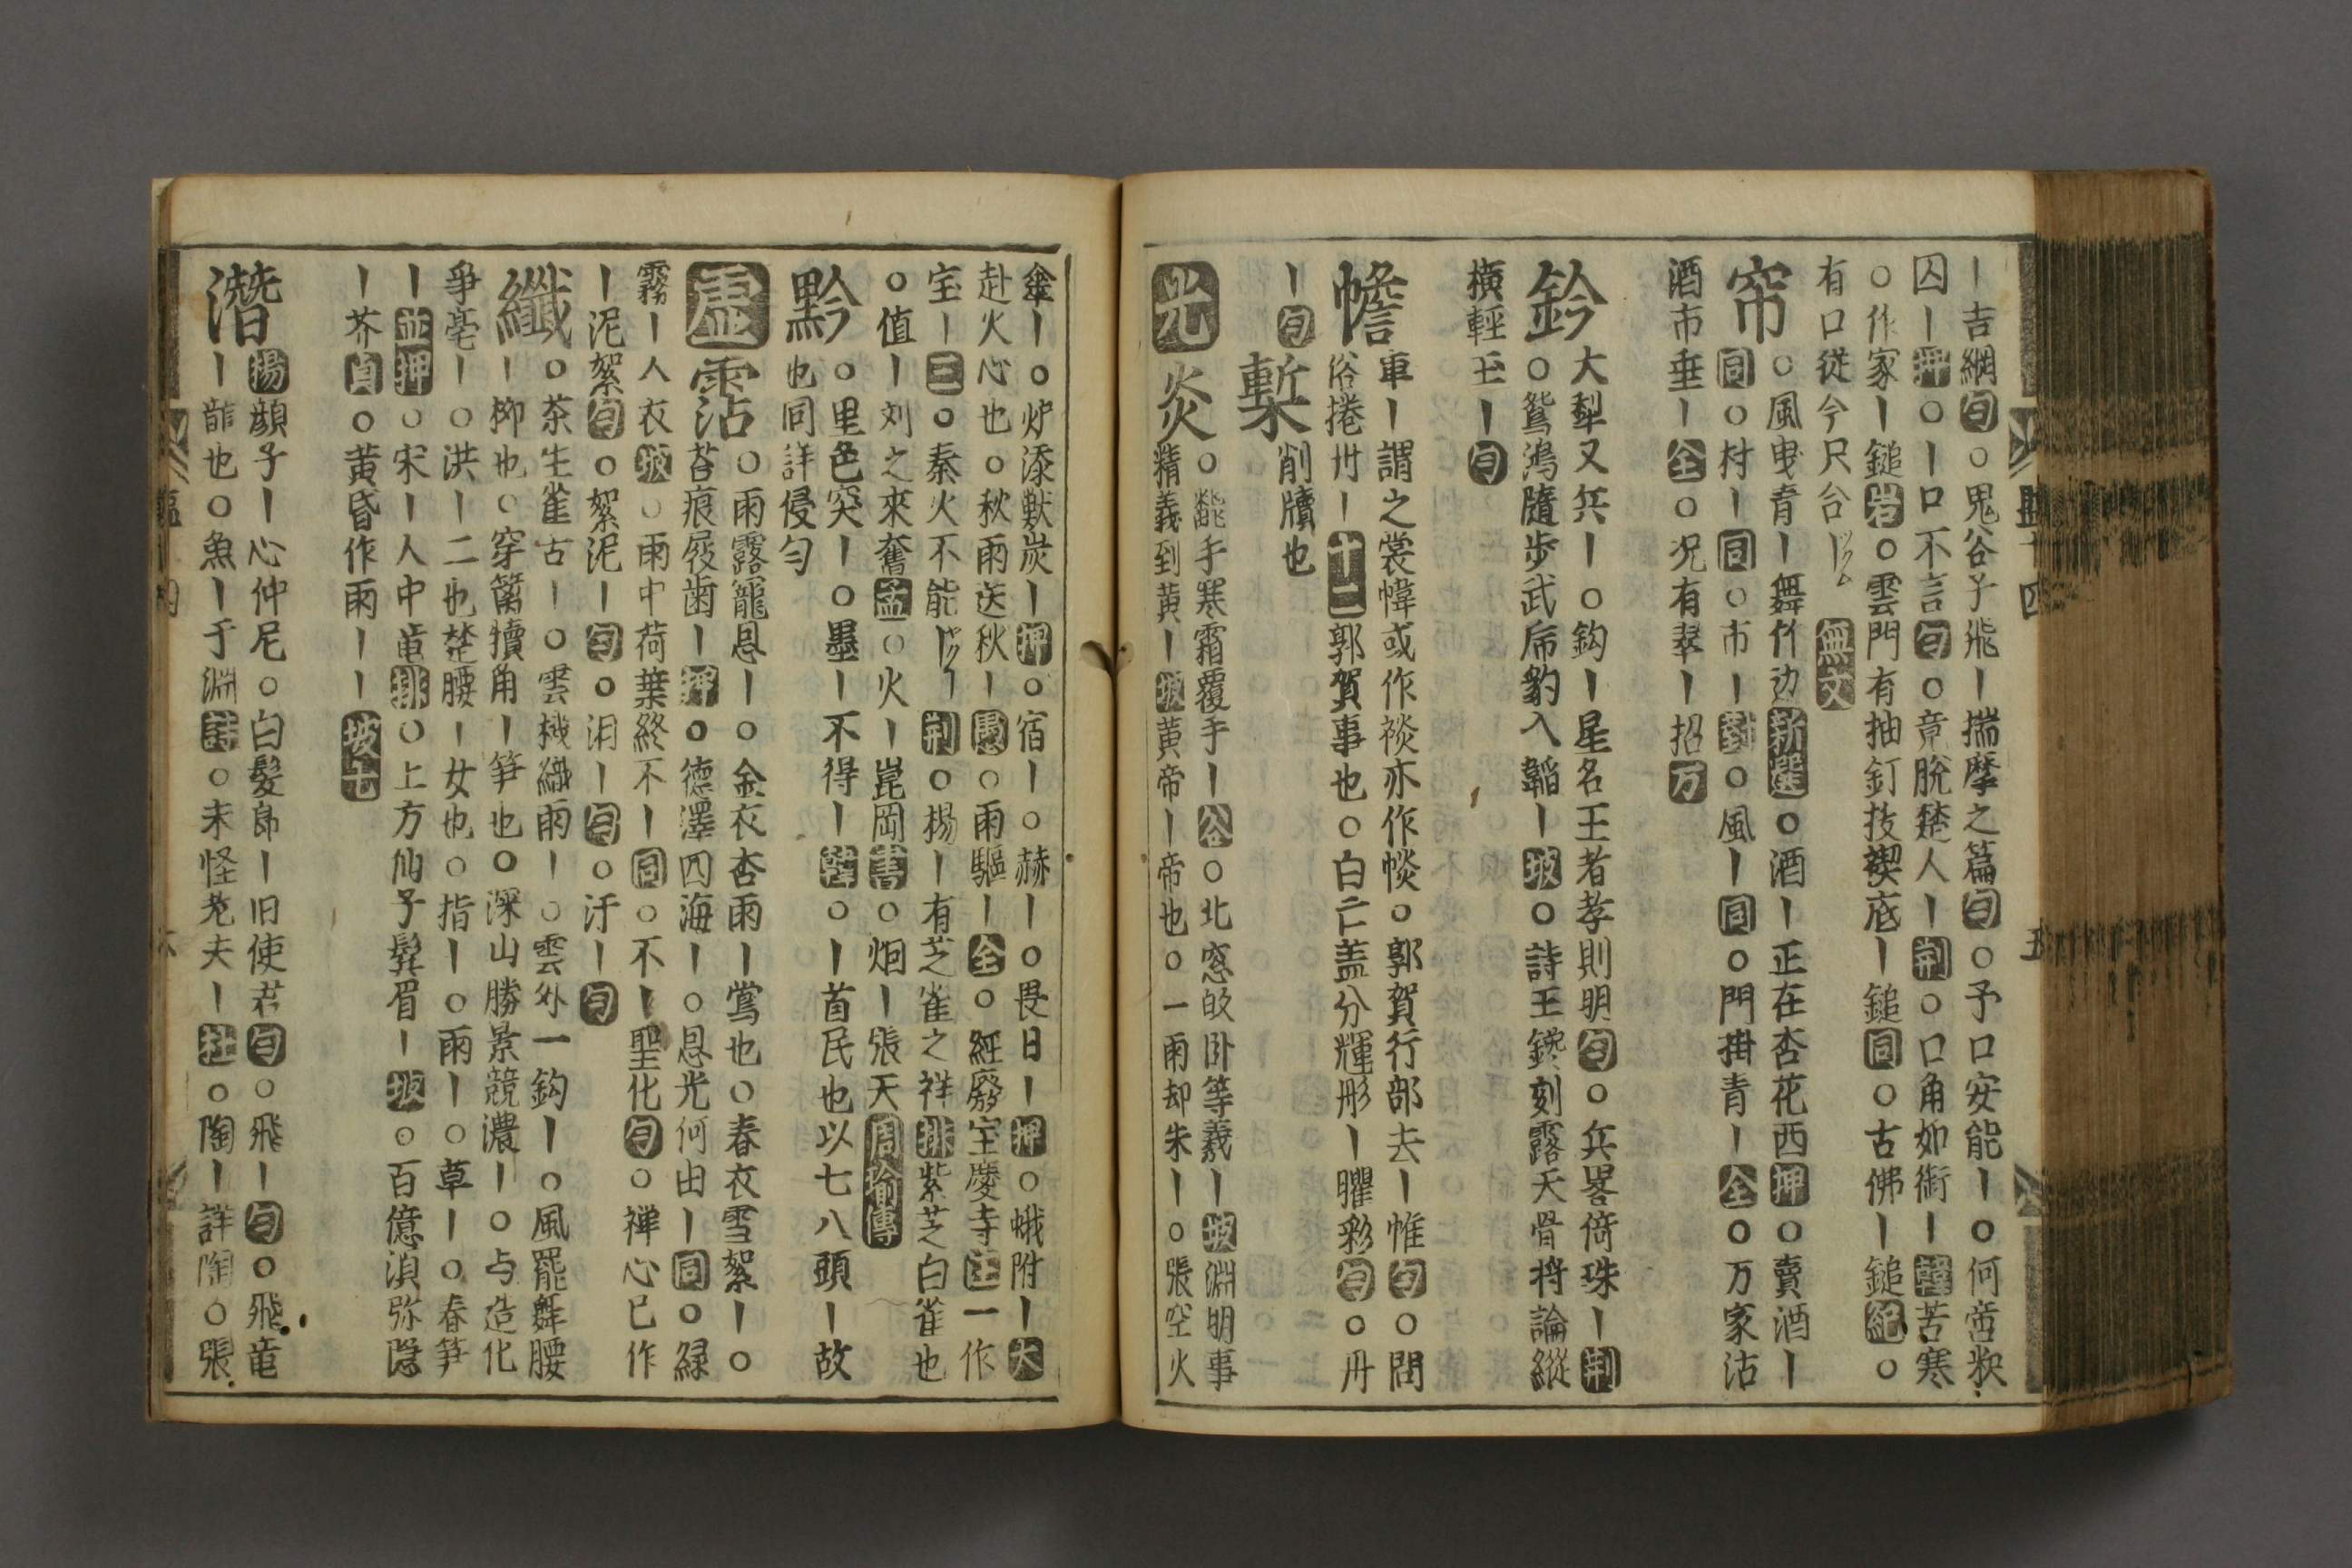 丨吉網句○鬼谷子飛丨揣摩之篇句○予口安能丨○何啻
囚丨押○丨口不言句○竟脫楚人丨荊○口角如銜丨韓苦寒
○作家丨鎚岩○雲門有抽釘技楔底丨鎚同○古佛丨鎚
有口従今只合丨ツクム 無文
帘○風曳青丨舞竹边新選○酒丨正在杏花西押○賣酒丨
同○村丨同○市丨對○風丨同○門掛青丨全○万家沽
酒市垂丨全○况有翠丨招万
鈐大犁又兵丨○鈎丨星名王者孝則明句○兵畧倚珠丨荊
○鴛鴻隨步武乕豹入韜丨坡○詩王鑱刻露天骨将論縱
橫輕玉丨句
幨車丨謂之裳幃或作裧亦作惔○郭賀行部去丨帷句○問
俗捲卅丨十二郭賀事也○白亡盖分輝彤丨曜彩句○丹
丨句 槧削牘也
光 炎○龍手寒霜覆手丨谷○北窓皈卧等羲丨坡淵明事
精義到黄丨坡黄帝丨帝也○一雨却朱丨○張空火
傘丨○炉添獸炭丨押○宿丨○赫丨○畏日丨押○蛾附丨大
赴火心也○秋雨送秋丨愚○雨驅丨全○經廢宝慶寺註一作
宝丨三○秦火不能丨荊○楊丨有芝雀之祥排紫芝白雀也
○值丨刘之來奮孟○火丨崑岡書○烟丨張天周瑜傳
黔○里色突丨○墨丨不得丨韓○丨首民也以七八頭丨故
也同詳侵勻
虚 霑○雨露寵恩丨○金衣杏雨丨鶯也○春衣雪絮丨○
苔痕屐歯丨押○德澤四海丨○恩光何由丨同○緑
霧丨人衣坡○雨中荷葉終不丨同○不丨聖化句○禅心已作
丨泥絮句○絮泥丨句○泪丨句○汙丨句
纖○茶生雀古丨○雲棧織雨丨○雲外一鈎丨○風罷舞腰
丨柳也○穿籬犢角丨笋也○深山勝景競濃丨○与造化
爭毫丨○洪丨二也楚腰丨女也○指丨○雨丨○草丨○春笋
丨並押○宋丨人中黄排○上方仙子髯眉丨坡○百億湏弥隠
丨芥真○黄昏作雨丨丨坡七
潜楊顔子丨心仲尼○白髪郎丨旧使君句○飛丨句○飛竜
丨龍也○魚丨于淵詩○未怪老夫丨杜○陶丨詳陶○張